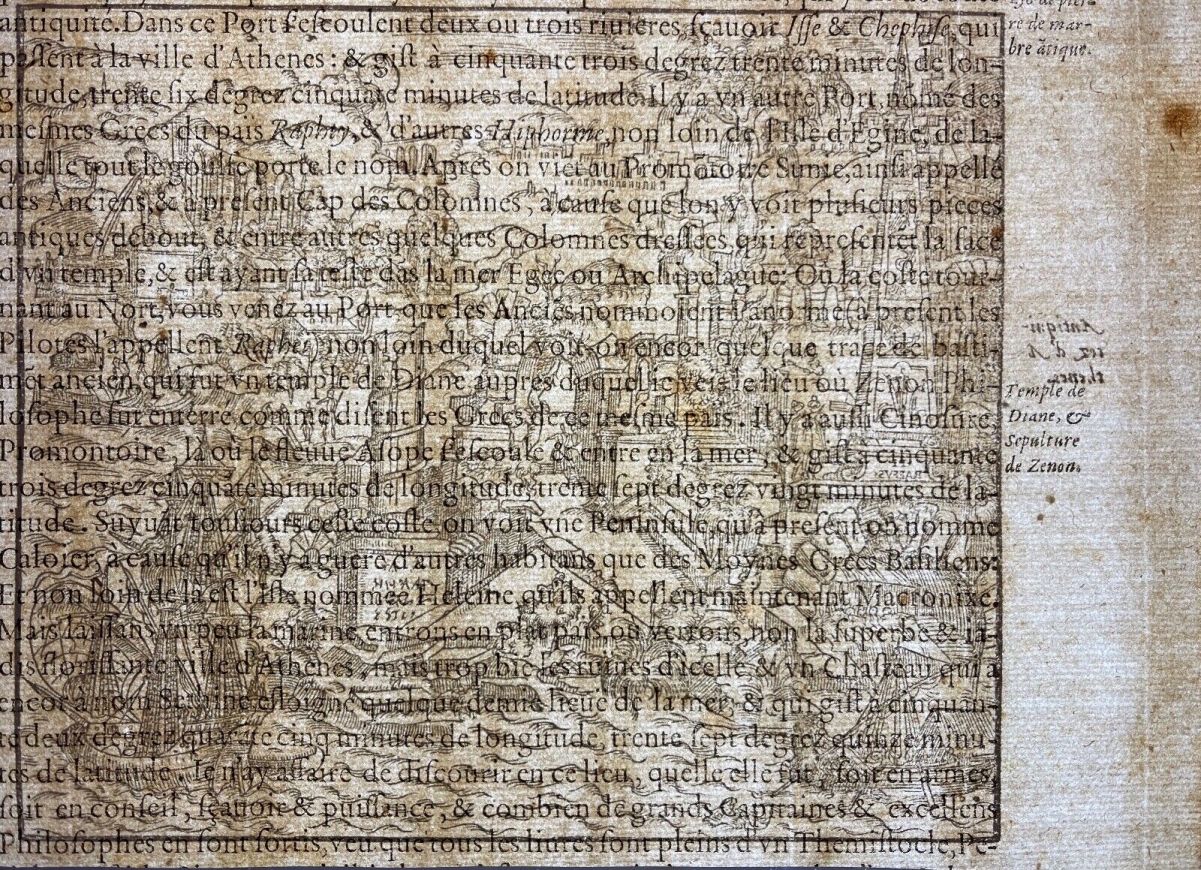 antiquité. Dans ce Port ſ'eſcoulent deux ou trois riuieres, ſçauoir Iſſe & Chephiſe, qui
paſſent à la ville d'Athenes : & giſt à cinquante trois degrez trente minutes de lon-
gitude, trente ſix degrez cinquāte minutes de latitude. Il y a vn autre Port, nōmé des
meſmes Grecs du païs Raphty, & d'autres Hipborme, non loin de l'Iſle d'Egine, de la-
quelle tout le goulfe porte le nom. Apres on viēt au Promōtoire Sunie, ainſi appellé
des Anciens, & à preſent Cap des Colomnes, à cauſe que lon y voit pluſieurs pieces
antiques debout, & entre autres quelques Colomnes dreſſees, qui repreſentēt la face
d'vn temple, & eſt ayant ſa teſte dās la mer Egee ou Archipelague. Où la coſte tour-
nant au Nort, vous venez au Port que les Anciēs nommoient Panorme (à preſent les
Pilotes l'appellent Raphti) non loin duquel voit-on encor quelque trace de baſti-
mēt ancien, qui fut vn temple de Diane, aupres duquel ie veis le lieu où Zenon Phi-
loſophe fut enterré comme diſent les Grecs de ce meſme païs. Il y a auſſi Cinoſure,
Promontoire, là où le fleuue Aſope ſ'eſcoule & entre en la mer, & giſt à cinquante
trois degrez cinquāte minutes de longitude, trente ſept degrez vingt minutes de la-
titude. Suyuāt touſiours ceſte coſte on voit vne Peninſule, qu'à preſent on nomme
Caloier, à cauſe qu'il n'y a guere d'autres habitans que des Moynes Grecs Baſiliens:
Et non loin de là eſt l'Iſle nommée Heleine, qu'ils appellent maintenant Macronixe.
Mais laiſſans vn peu la marine, entrons en plat païs, où verrons, non la ſuperbe & ia-
dis floriſſante ville d'Athenes, mais trop biē les ruines d'icelle & vn Chaſteau qui a
encor à nom eſloigné quelque demie lieuë de la mer, & qui giſt à cinquan-
te deux degrez quarāte cinq minutes de longitude, trente ſept degrez quinze minu-
tes de latitude. Ie n'ay affaire de diſcourir en ce lieu, quelle elle fut, ſoit en armes,
ſoit en conſeil, ſçauoir & puiſſance, & combien de grands Capitaines & excellens
Philoſophes en ſont ſortis, veu que tous les liures ſont pleins d'vn Themiſtocle, Pe-
re de mar-
bre ātique.
Temple de
Diane, &
Sepulture
de Zenon.